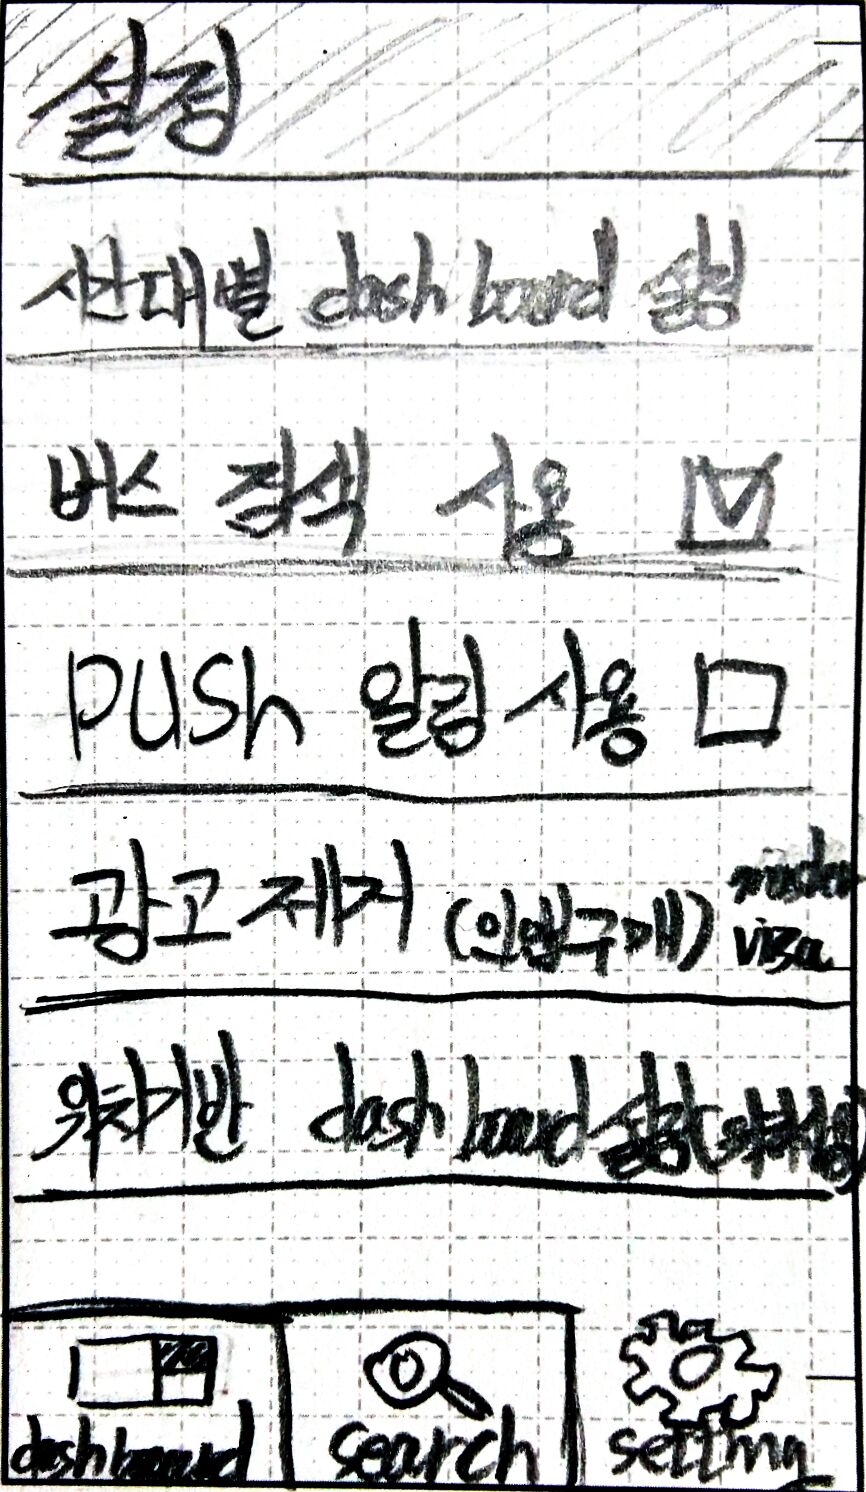 설정
시간대별 dash board 설정
버스 검색 사용
push 알림 사용
광고 제거 (인앱구매)
위치기반 dash board 설정
dashboard search setting